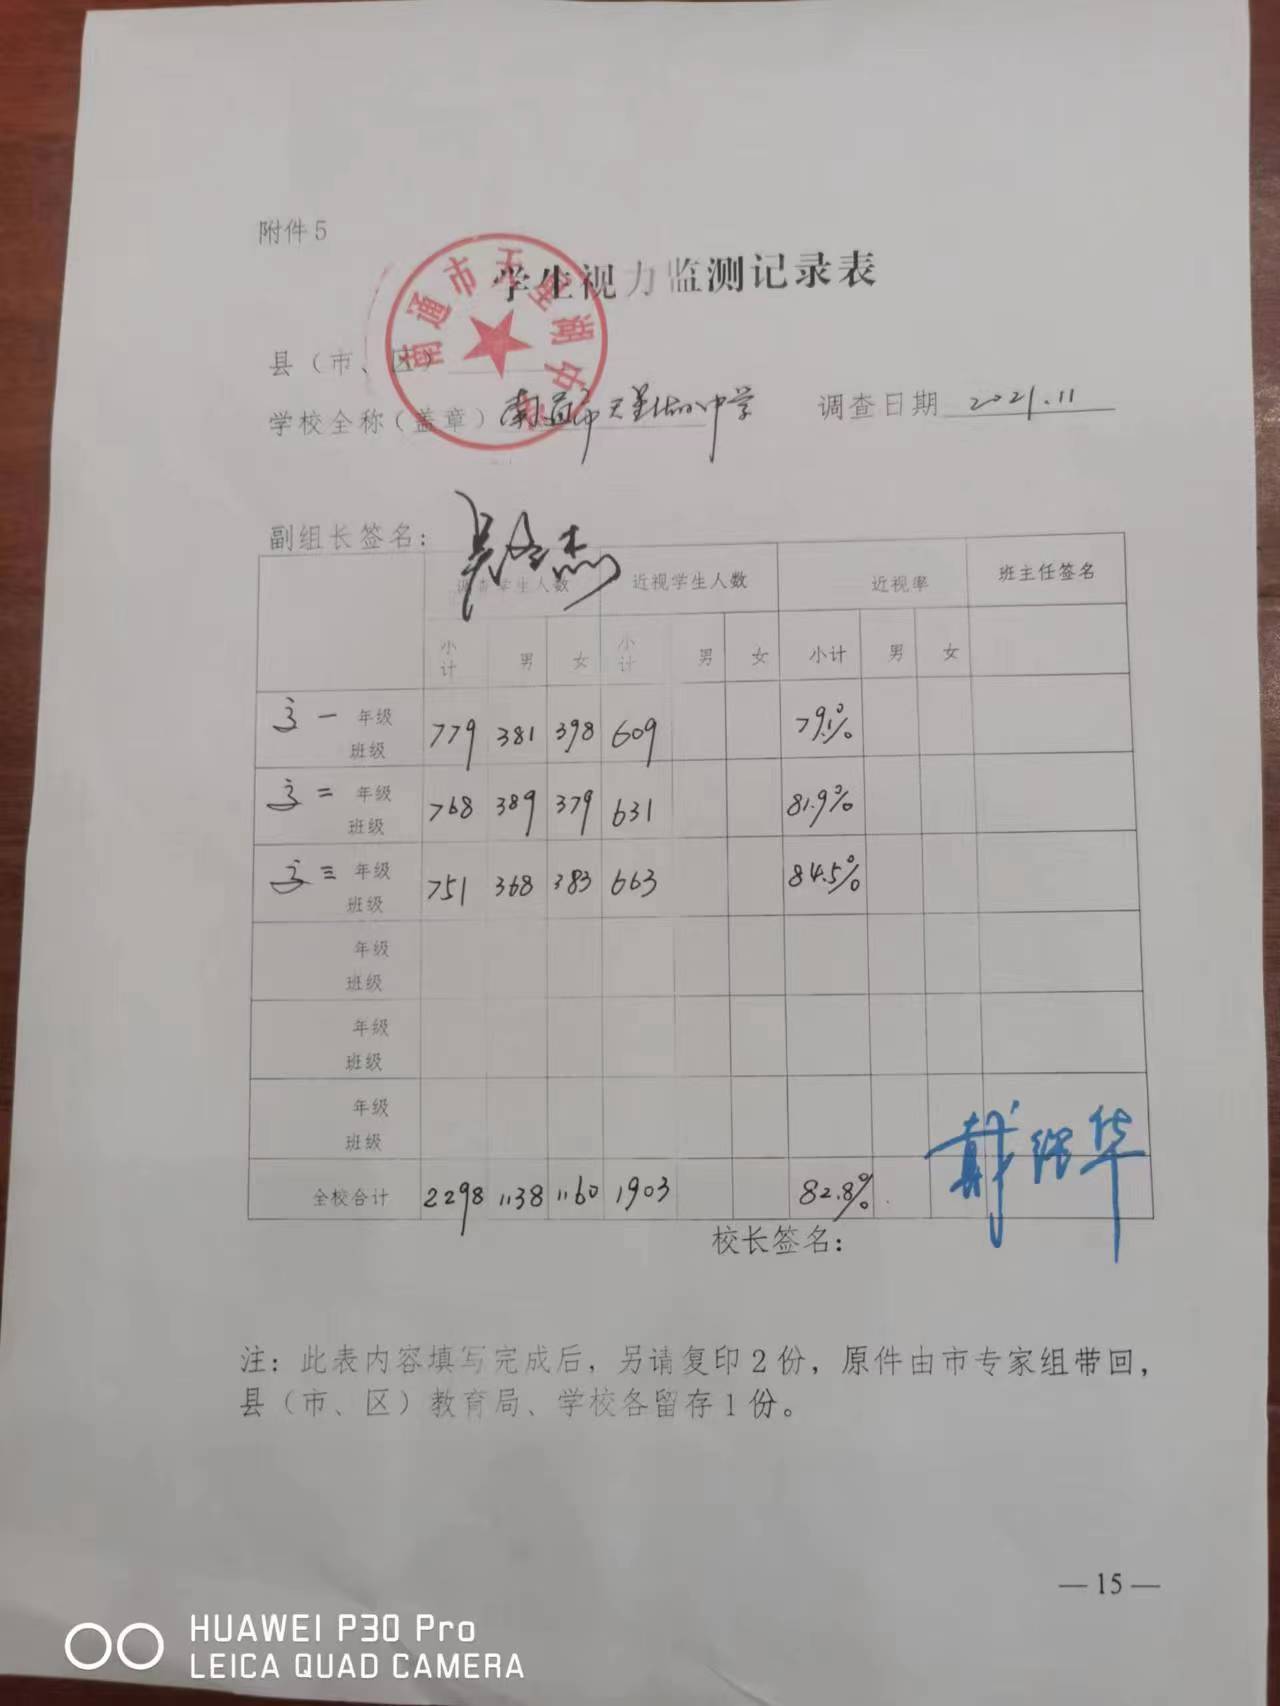 附件5
学生视力监测记录表
南通市天星湖中学
县（市、区）
学校全称（盖章）南通市天星湖中学 调查日期 2021.11
副组长签名：
调查学生人数 近视学生人数 近视率 班主任签名
小计 男 女 小计 男 女 小计 男 女
高一 年级 班级 779 381 398 609 79.1%
高二 年级 班级 768 389 379 631 81.9%
高三 年级 班级 751 368 383 663 84.5%
年级 班级
年级 班级
年级 班级
全校合计 2298 1138 1160 1903 82.8%
校长签名： 戴绍华
注：此表内容填写完成后，另请复印2份，原件由市专家组带回，
县（市、区）教育局、学校各留存1份。
—15—
HUAWEI P30 Pro
LEICA QUAD CAMERA